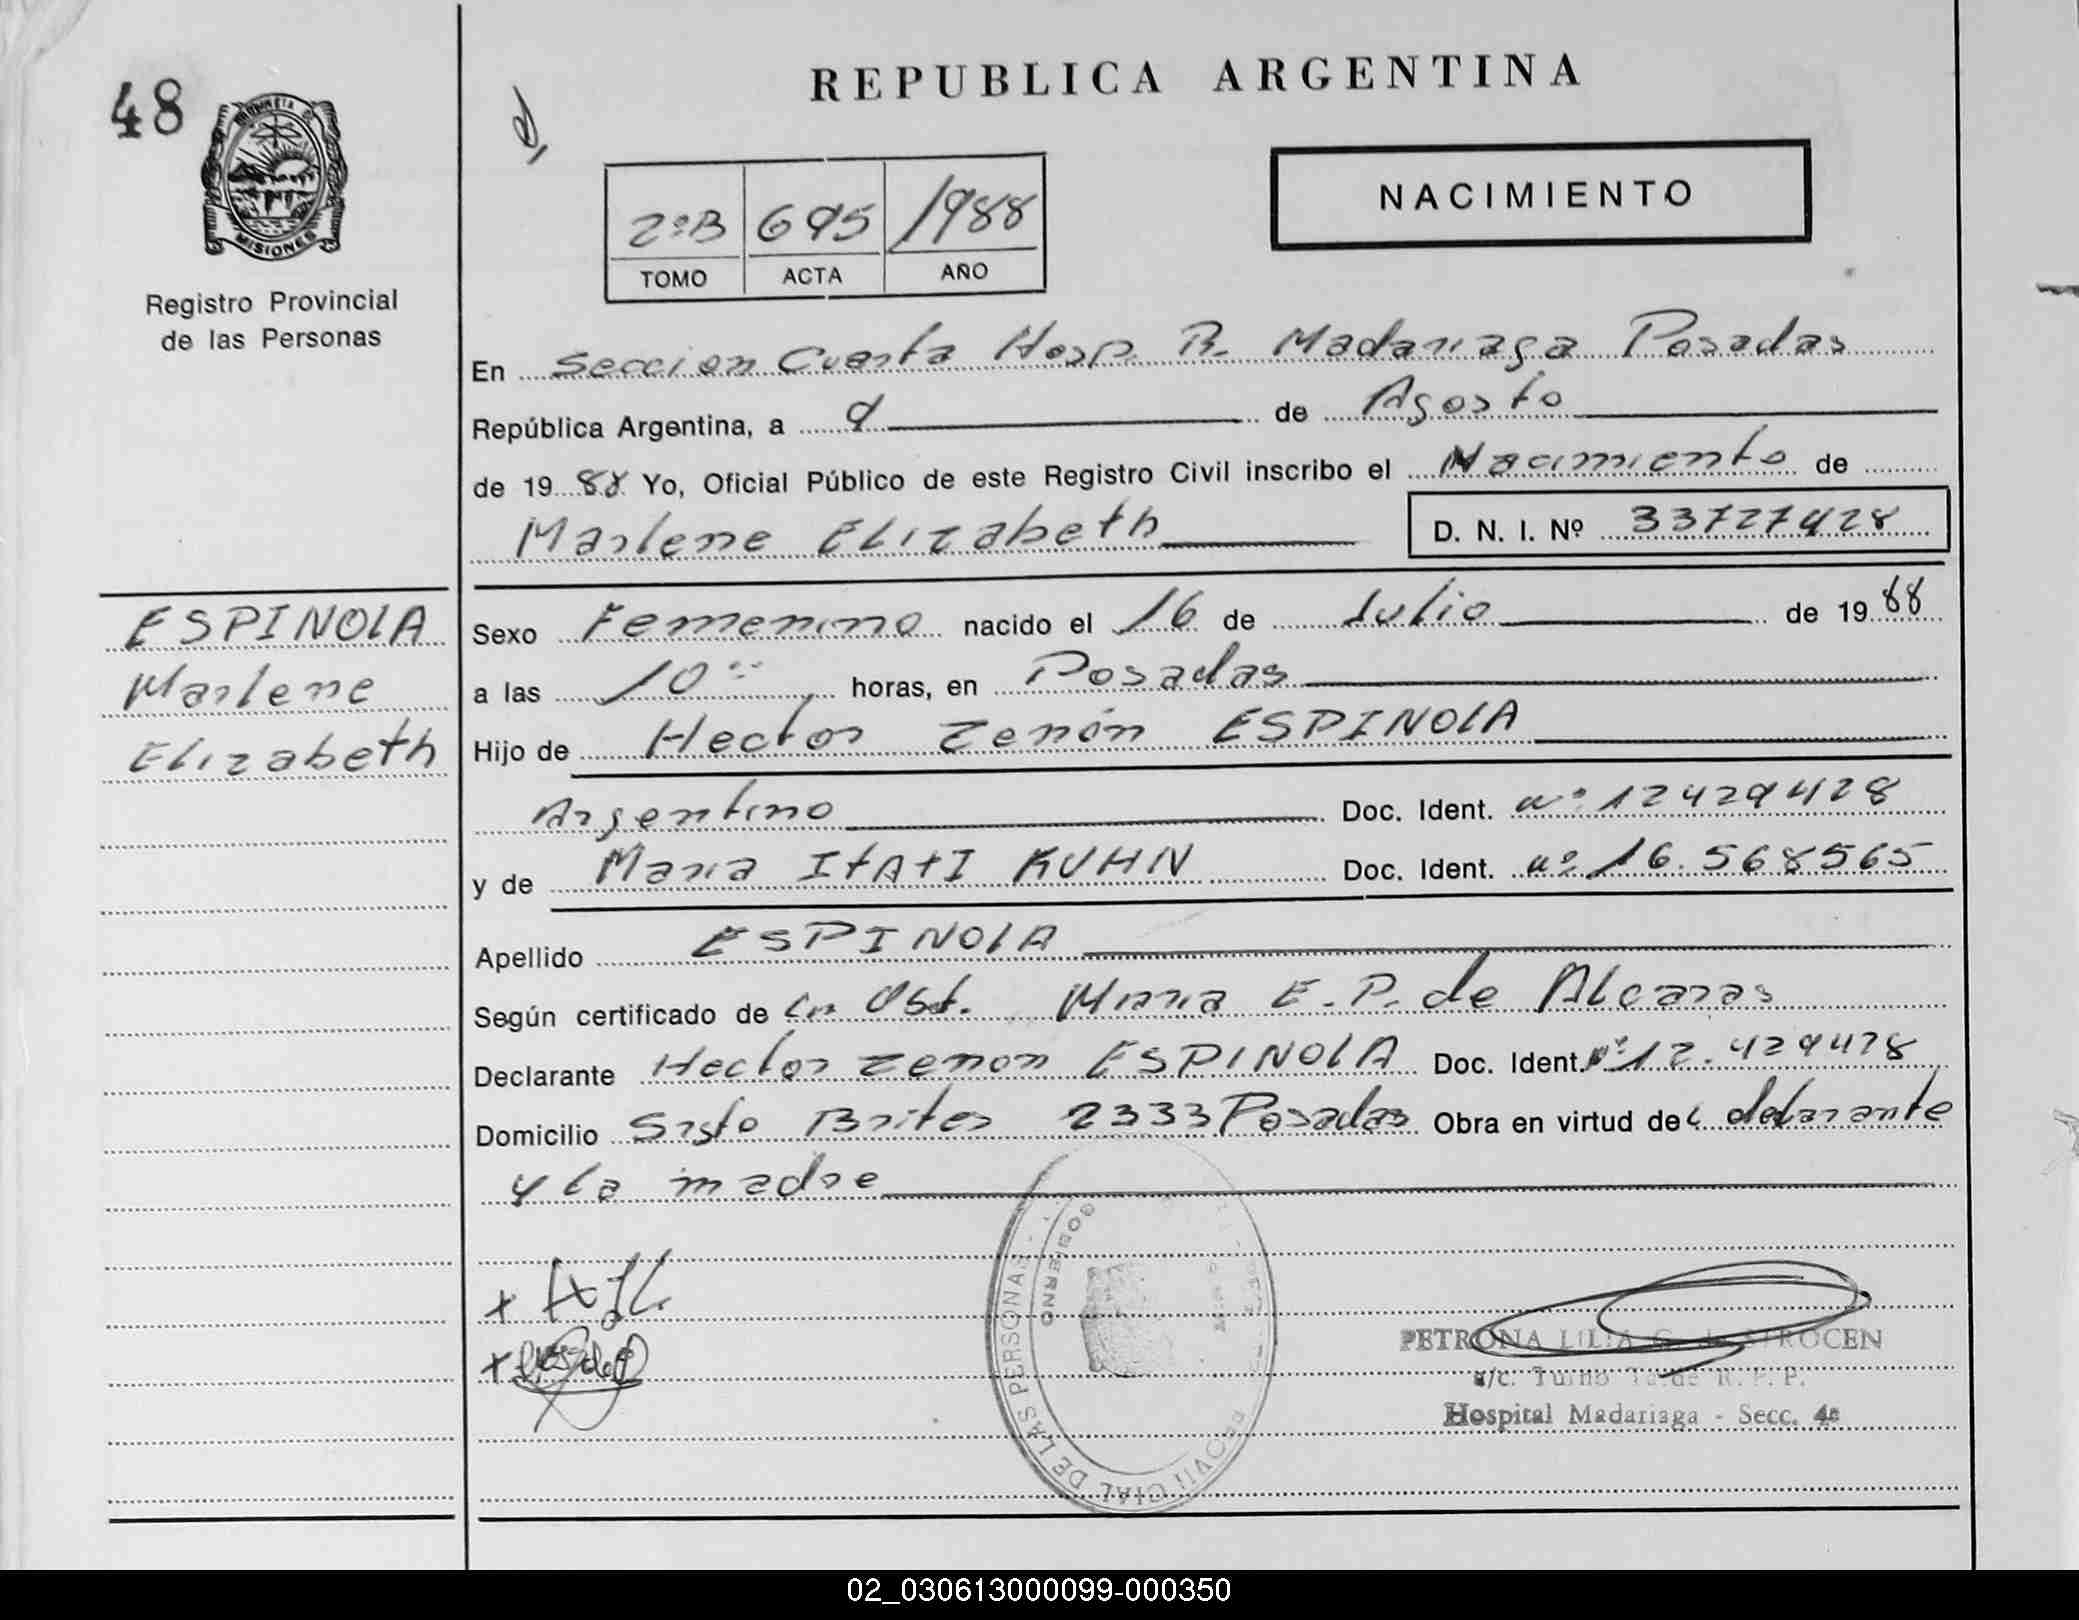 REPUBLICA ARGENTINA
48
PROVINCIA D
MISIONES
Registro Provincial
de las Personas
NACIMIENTO
2ºB 695 1988
TOMO ACTA AÑO
En Seccion Cuarta Hosp. R. Madariaga Posadas
República Argentina, a 9 de Agosto
de 1988 Yo, Oficial Público de este Registro Civil inscribo el Nacimiento de
Marlene Elizabeth D. N. I. Nº 33727428
ESPINOLA
Marlene
Elizabeth
Sexo Femenino nacido el 16 de Julio de 1988
a las 10 horas, en Posadas
Hijo de Hector Zenón ESPINOLA
Argentino Doc. Ident. nº 12429428
y de Maria ItAtI KUHN Doc. Ident. nº 16.568565
Apellido ESPINOLA
Según certificado de la Obst. Maria E. P. de Alcaras
Declarante Hector Zenon ESPINOLA Doc. Ident. nº 12.429428
Domicilio Sisto Brites 2333 Posadas Obra en virtud de
y la madre
PROVINCIAL DE LAS PERSONAS
GOBIERNO
PETRONA LILIA G. de STROCEN
a/c. Turno Tarde R. P. P.
Hospital Madariaga - Secc. 4a
02_030613000099-000350